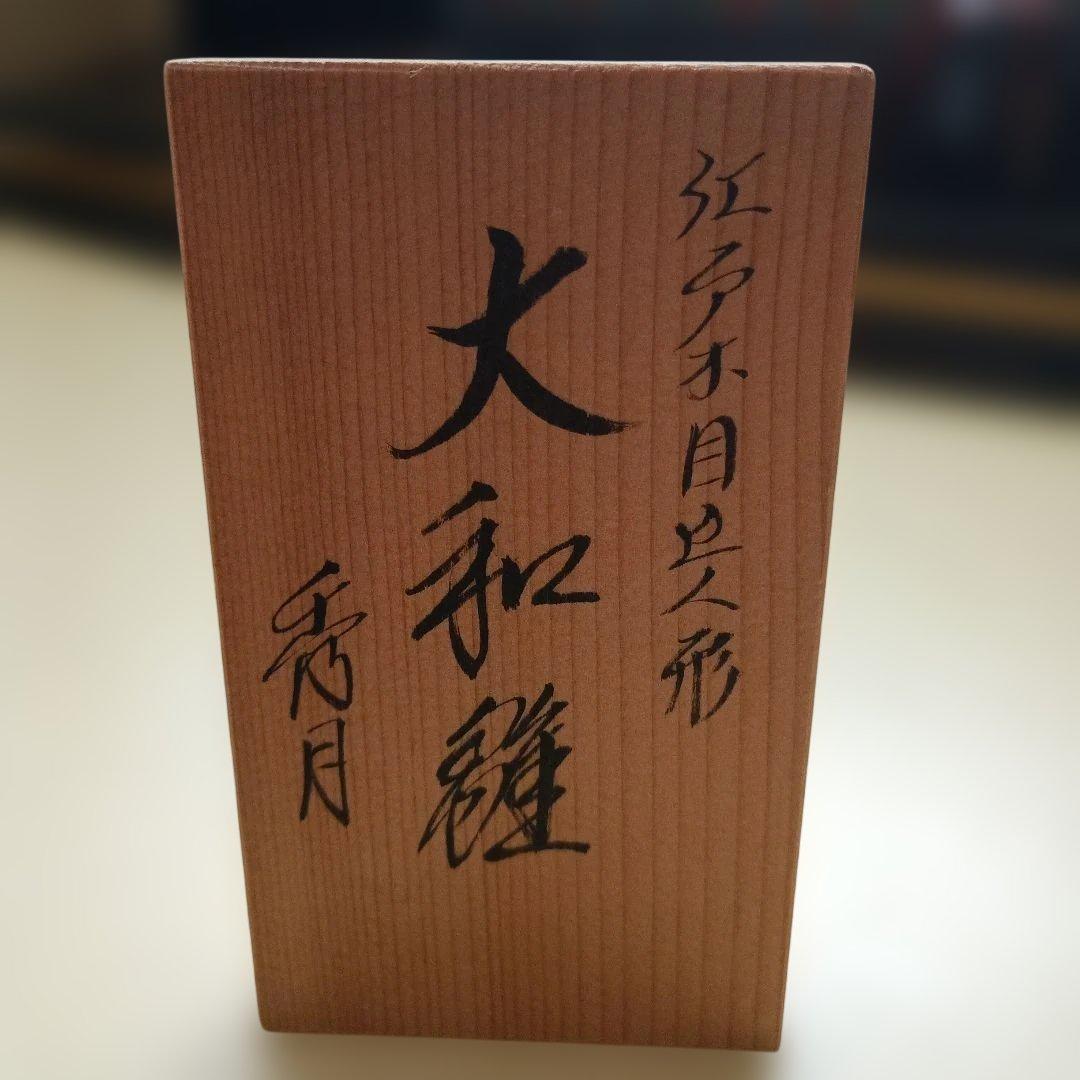 江戸木目込人形
大和雛
秀月